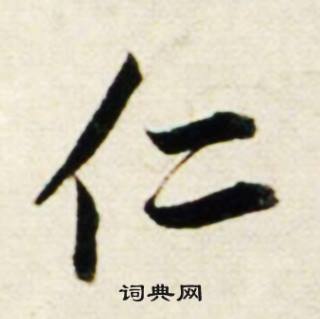 仁
词典网